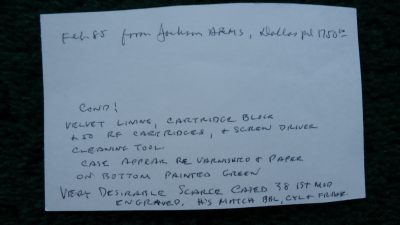 Feb 85 from Jackson ARMS, Dallas pd 1750.00
COND!
VELVET LINING, CARTRIDGE BLOCK
50 RF CARTRIDGES, + SCREW DRIVER
CLEANING TOOL.
CASE APPEAR RE VARNISHED + PAPER
ON BOTTOM PAINTED GREEN
VERY DESIRABLE SCARCE CASED 38 1ST MOD
ENGRAVED, #'S MATCH BBL, CYL + FRAME